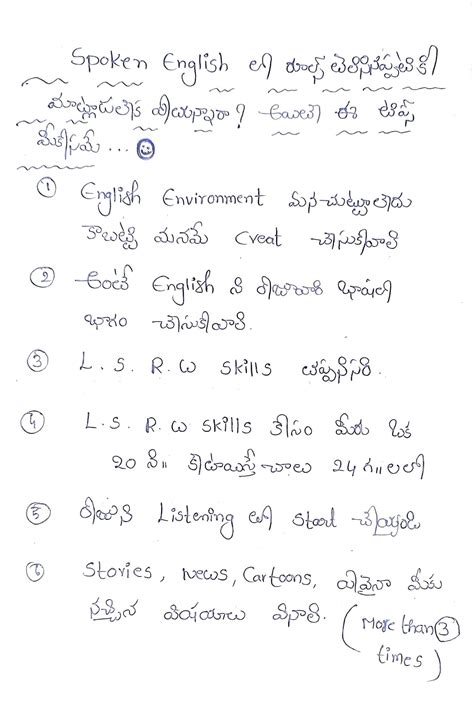 Spoken English లో రూల్స్ తెలిసినప్పటికీ
మాట్లాడలేక పోయున్నారా? అయితే ఈ టిప్స్
మీకోసమే ... ☺
① English Environment మన చుట్టూ లేదు
కాబట్టి మనమే Creat చేసుకోవాలి
② అంటే English ని రోజూవారి భాషలో
భాగం చేసుకోవాలి.
③ L. S. R. W skills తప్పనిసరి.
④ L. S. R. W skills కోసం మీరు ఒక
20 ని॥ కేటాయిస్తే చాలు 24 గ॥లలో
⑤ రోజుని Listening లో start చేయ్యండి
⑥ Stories, News, Cartoons, ఏవైనా మీకు
నచ్చిన విషయాలు వినాలి. (More than ③
times)